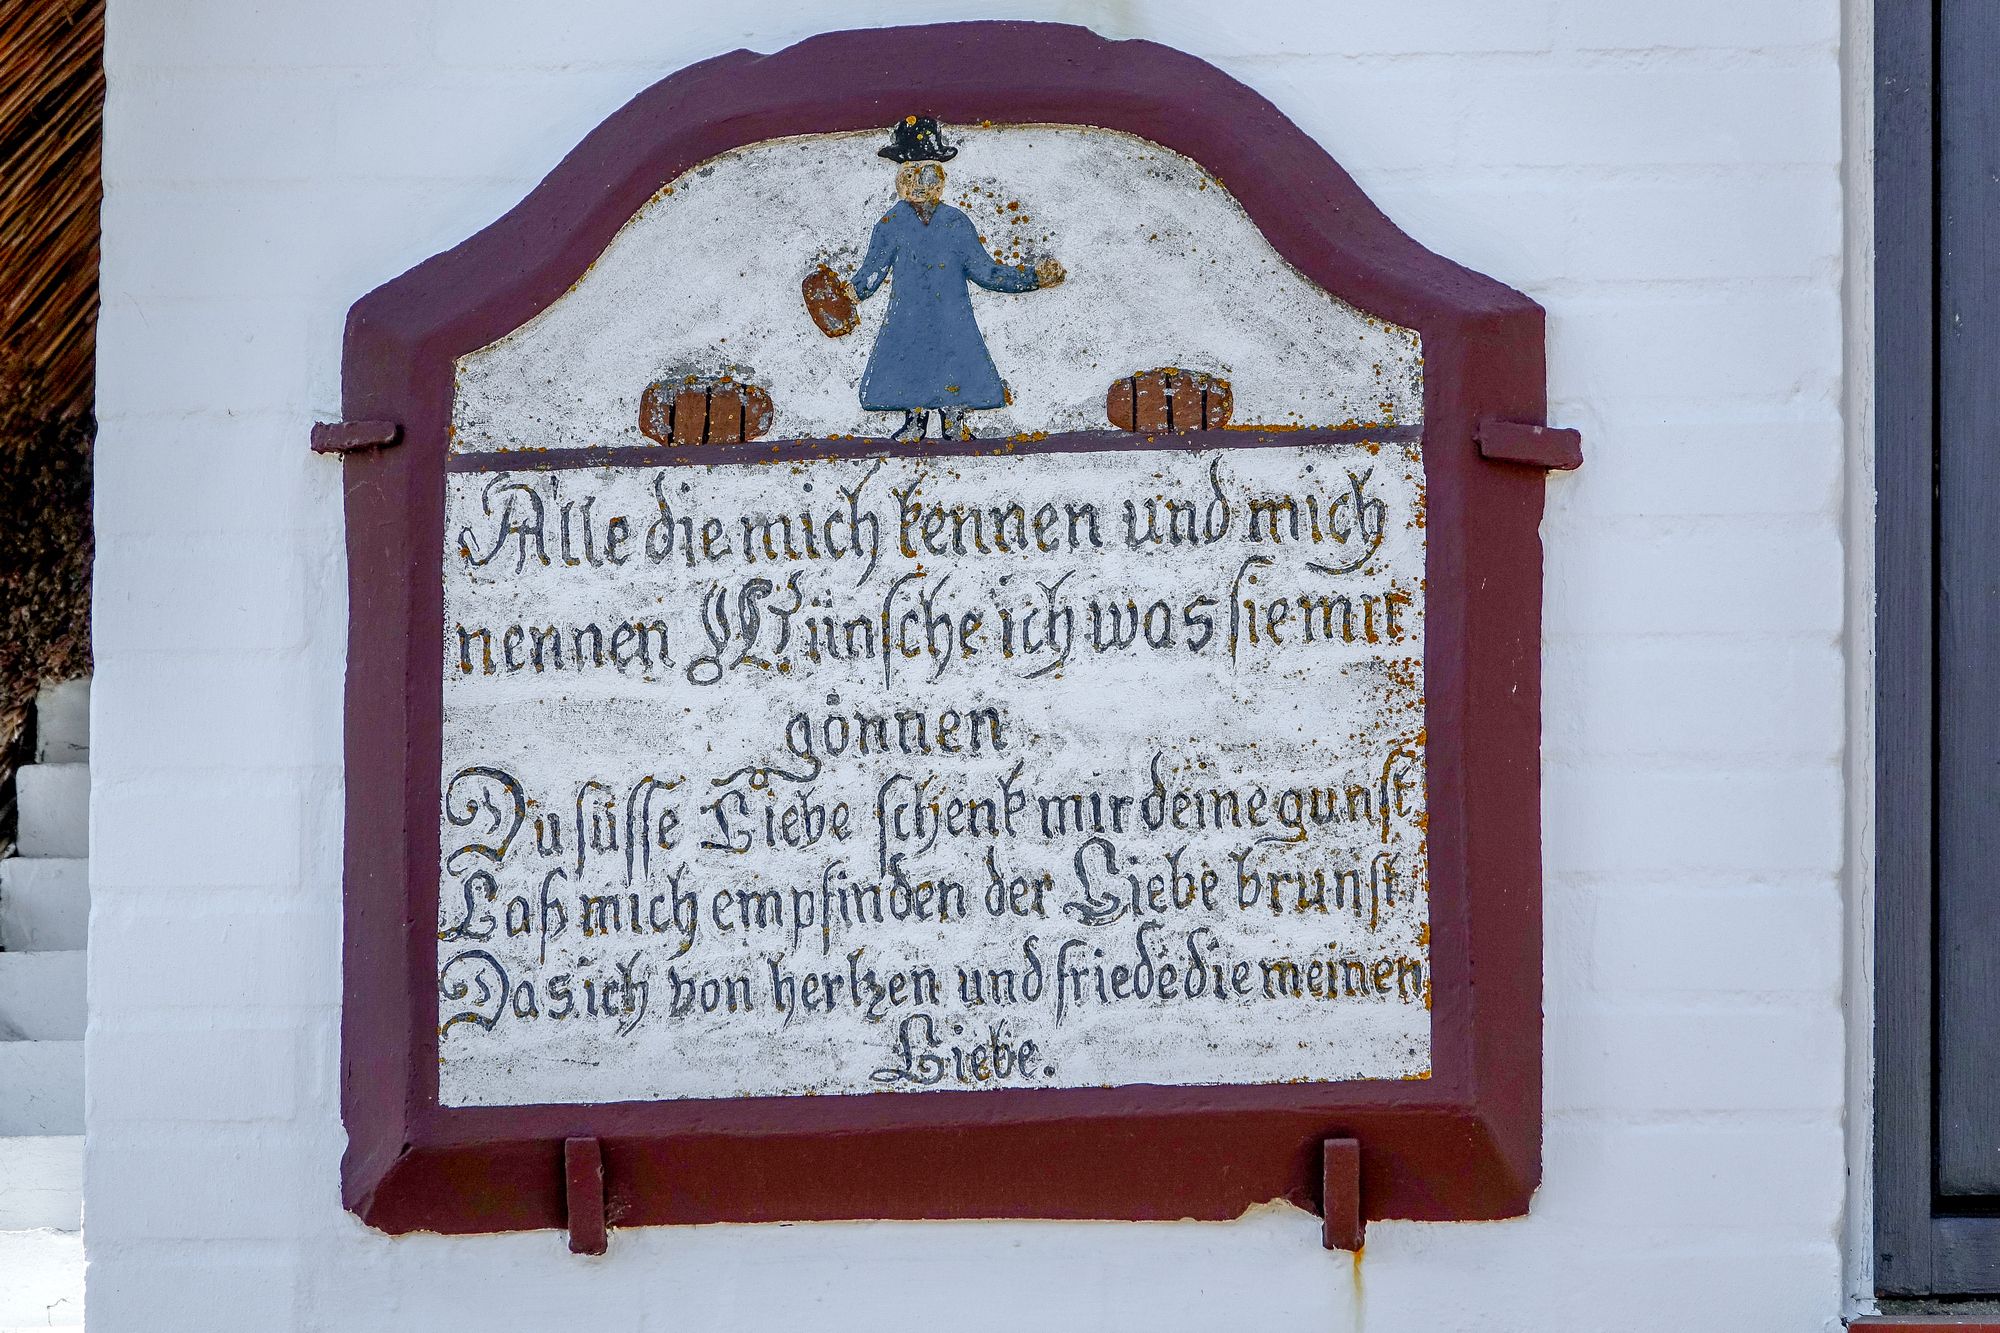 Alle die mich kennen und mich
nennen Wünsche ich was sie mir
gönnen
Du süsse Liebe schenk mir deine gunst
Laß mich empfinden der Liebe brunst
Das ich von hertzen und friede die meinen
Liebe.